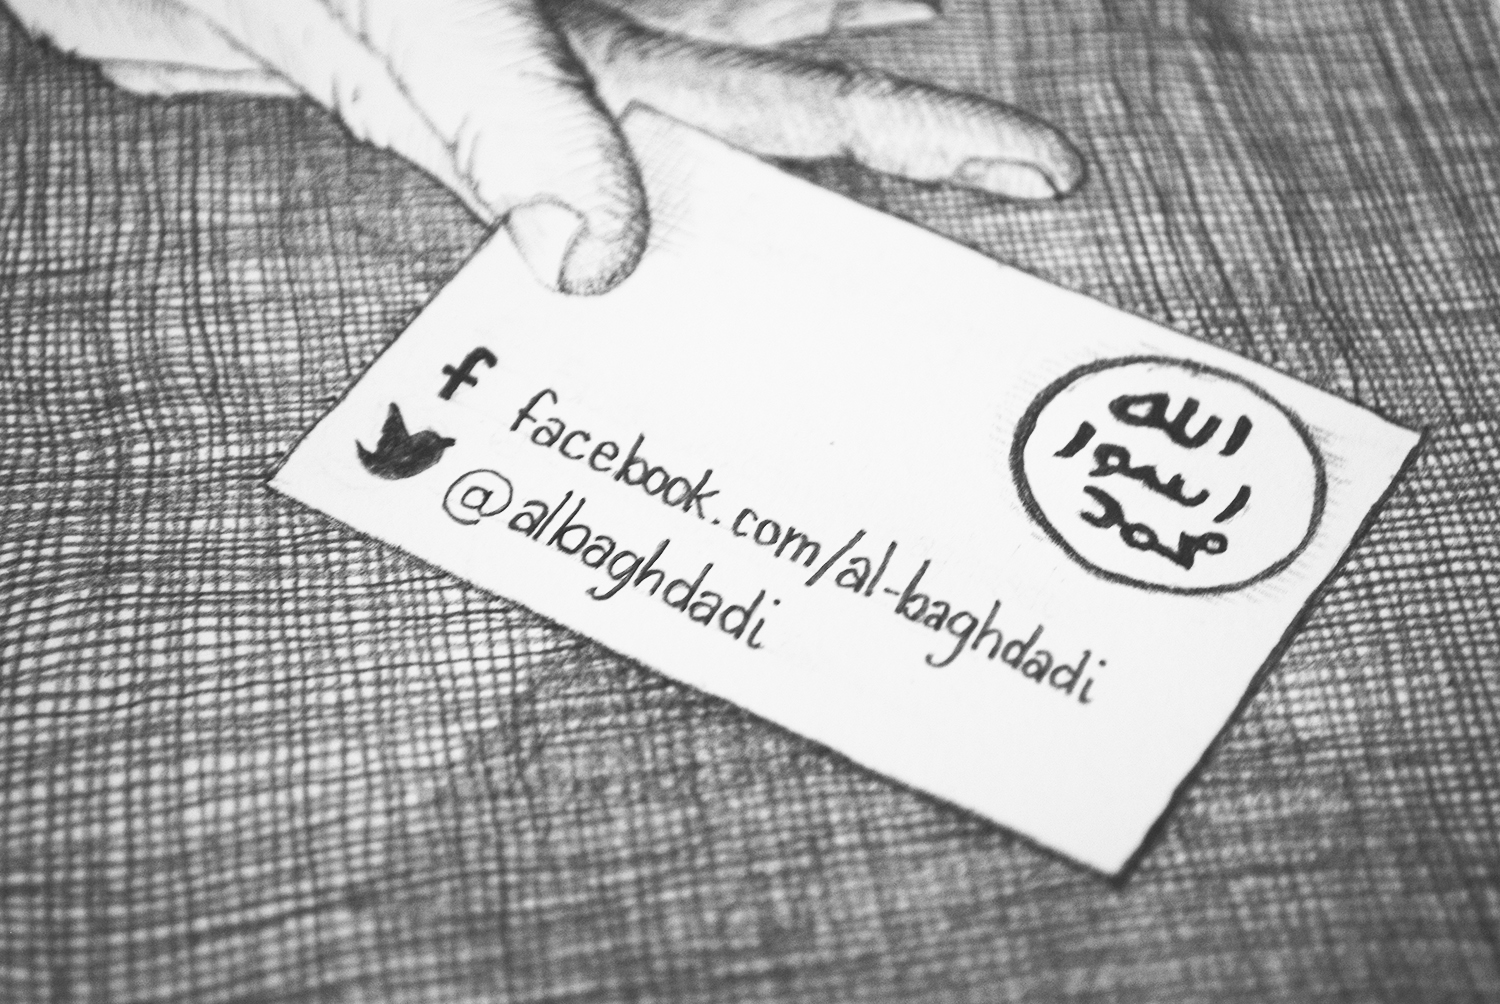 facebook.com/al-baghdadi
@albaghdadi
الله
رسول
محمد